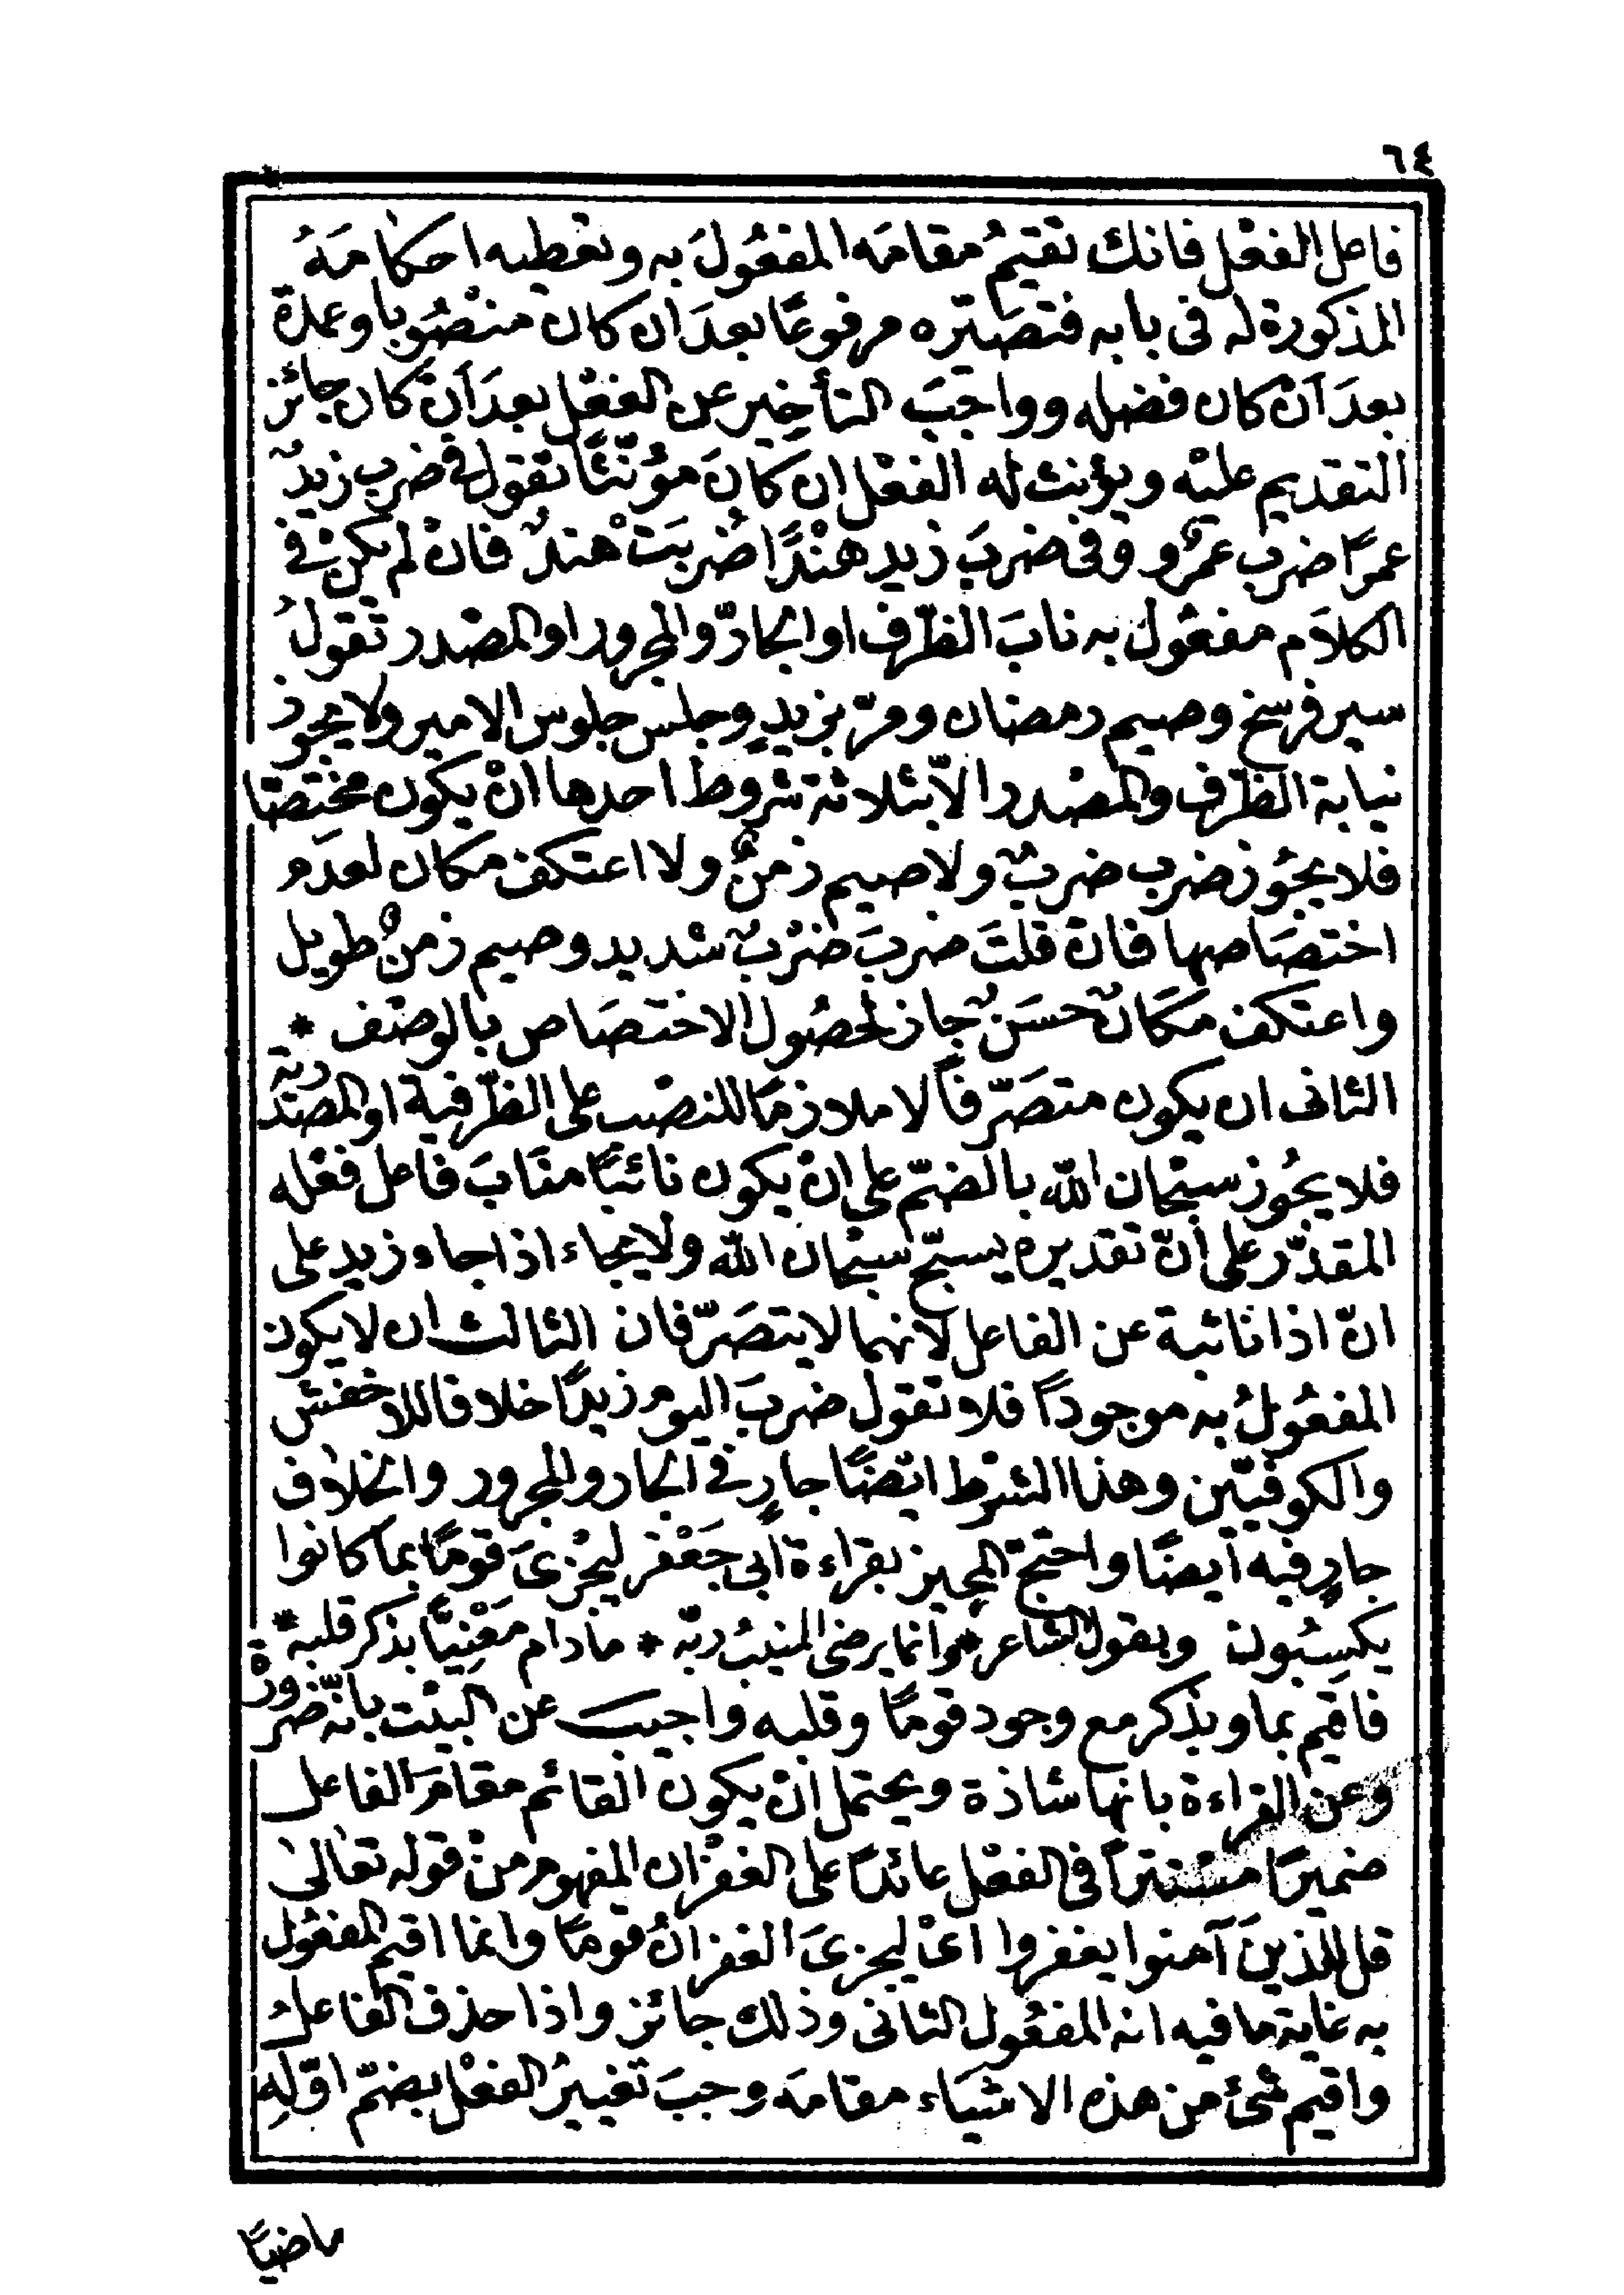 ٦٤
فاعل الفعْل فانك تقيمُ مقامَه المفعُولَ به وتعطيه احكامَهُ
المذكورة له فى بابه فتصيّره مرفوعًا بعدَ ان كان منصُوبا وعمدة
بعدَ اَن كان فضله وواجبَ التأخير عن الفعْل بعدَ اَن كان جائز
التقديم عليْه ويؤنث له الفعْل ان كانَ مؤنّثًا تقول فى ضرب زيدٌ
عمرًا ضرب عمرٌو وفى ضربَ زيد هنْدًا ضُربَتْ هندٌ فانْ لم يكن فى
الكلاَم مفعُول به نابَ الظرف او الجارّ والمجرور او المصْدر تقولُ
سير فرسخ وصيم رمضان ومرّ بزيدٍ وجلس جلوس الامير ولا يجوز
نيابة الظرف والمصْدر الاّ بثلاثة شروط احدها انْ يكون مختصّا
فلا يجُوز ضرب ضربٌ ولا صيم زمنٌ ولا اعتكف مكان لعدَم
اختصَاصها فان قلتَ ضربَ ضرْبٌ شديد وصيم زمنٌ طويل
واعتكف مكَانٌ حسَنٌ جاز لحصُول الاختصَاص بالوصْف *
الثانى ان يكون متصَرّفاً لا ملازمًا للنصْب على الظّرفية او المصْدرية
فلا يجُوز سبْحان الله بالضمّ على انْ يكون نائبًا منَابَ فاعل فعْله
المقدّر على أنّ تقديره يسبّح سبْحان الله ولا يجاء اذا جاء زيد على
انّ اذا نائبة عن الفاعل لانهما لا يتصَرّفان الثالث ان لا يكون
المفعُولُ به موجوداً فلا تقول ضربَ اليوم زيدًا خلافا للاخفش
والكوفيّين وهذا الشرط ايْضًا جارٍ فى الجار والمجرور والخلاف
جارٍ فيه أيضًا واحتجّ المجيز بقراءة ابى جَعْفر ليُجْزىَ قومًا بما كانوا
يكسِبُون وبقول الشاعر * وانما يرضى المنيبُ ربّه * مادام مَعْنِيًّا بذكر قلبه *
فاقيم بما وبذكر مع وجود قومًا وقلبه واجيب عن البيْت بانّه ضرورة
وعن القراءة بانها شاذة ويحتمل انْ يكون القائم مقامَ الفاعل
ضميرًا مسْتتراً فى الفعْل عائدًا على الغفْران المفهوم منْ قوله تعالىٰ
قل للذينَ آمنوا يغفروا اىْ ليجزىَ الغفرانُ قومًا وانما اقيم المفعُول
به غاية ما فيه انه المفعُول الثانى وذلك جائز واذا حذف الفاعلُ
واقيم شىء من هذه الاشيَاء مقامَه وجبَ تغييرُ الفعْل بضمّ اوّلِهِ
ماضيًا